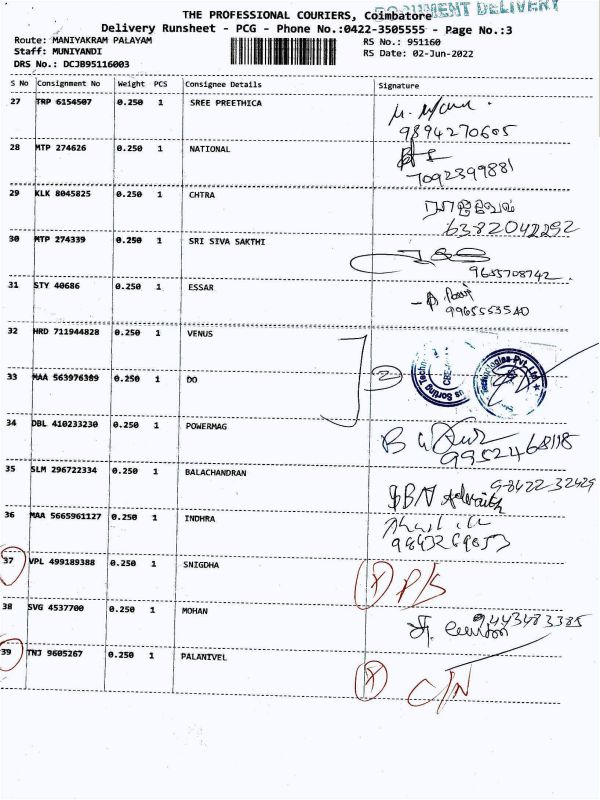 DOCUMENT DELIVERY
THE PROFESSIONAL COURIERS, Coimbatore
Delivery Runsheet - PCG - Phone No.:0422-3505555 - Page No.:3
Route: MANIYAKRAM PALAYAM RS No.: 951160
Staff: MUNIYANDI RS Date: 02-Jun-2022
DRS No.: DCJB95116003
S No Consignment No Weight PCS Consignee Details Signature
27 TRP 6154507 0.250 1 SREE PREETHICA
9894270605
28 MTP 274626 0.250 1 NATIONAL
7092399881
29 KLK 8045825 0.250 1 CHTRA
6382042292
30 MTP 274339 0.250 1 SRI SIVA SAKTHI
9655708742.
31 STY 40686 0.250 1 ESSAR
9965553540
32 HRD 711944828 0.250 1 VENUS
33 MAA 563976389 0.250 1 DO 2
34 DBL 410233230 0.250 1 POWERMAG
9952468118
35 SLM 296722334 0.250 1 BALACHANDRAN
98422-32429
36 MAA 5665961127 0.250 1 INDHRA
9843269853
37 VPL 499189388 0.250 1 SNIGDHA X P/S
38 SVG 4537700 0.250 1 MOHAN 9443483385
39 TNJ 9605267 0.250 1 PALANIVEL X C/N